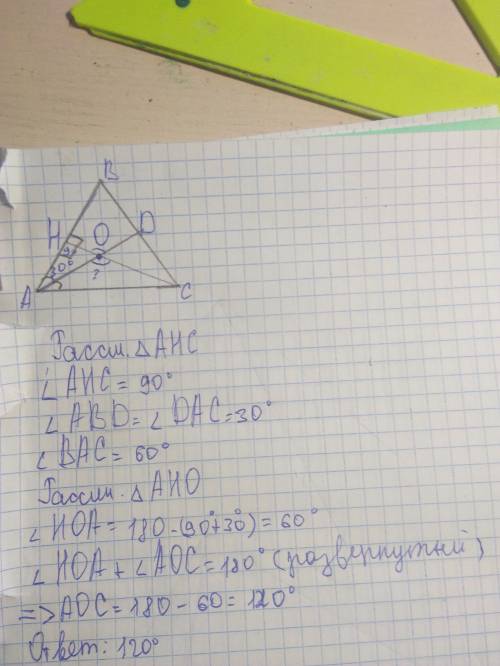 B
H O D
90
30°
?
A C
Рассм. △AHC
∠AHC = 90°
∠ABD = ∠DAC = 30°
∠BAC = 60°
Рассм. △AHO
∠HOA = 180 - (90° + 30°) = 60°
∠HOA + ∠AOC = 180° (развернутый)
=> AOC = 180 - 60 = 120°
Ответ: 120°